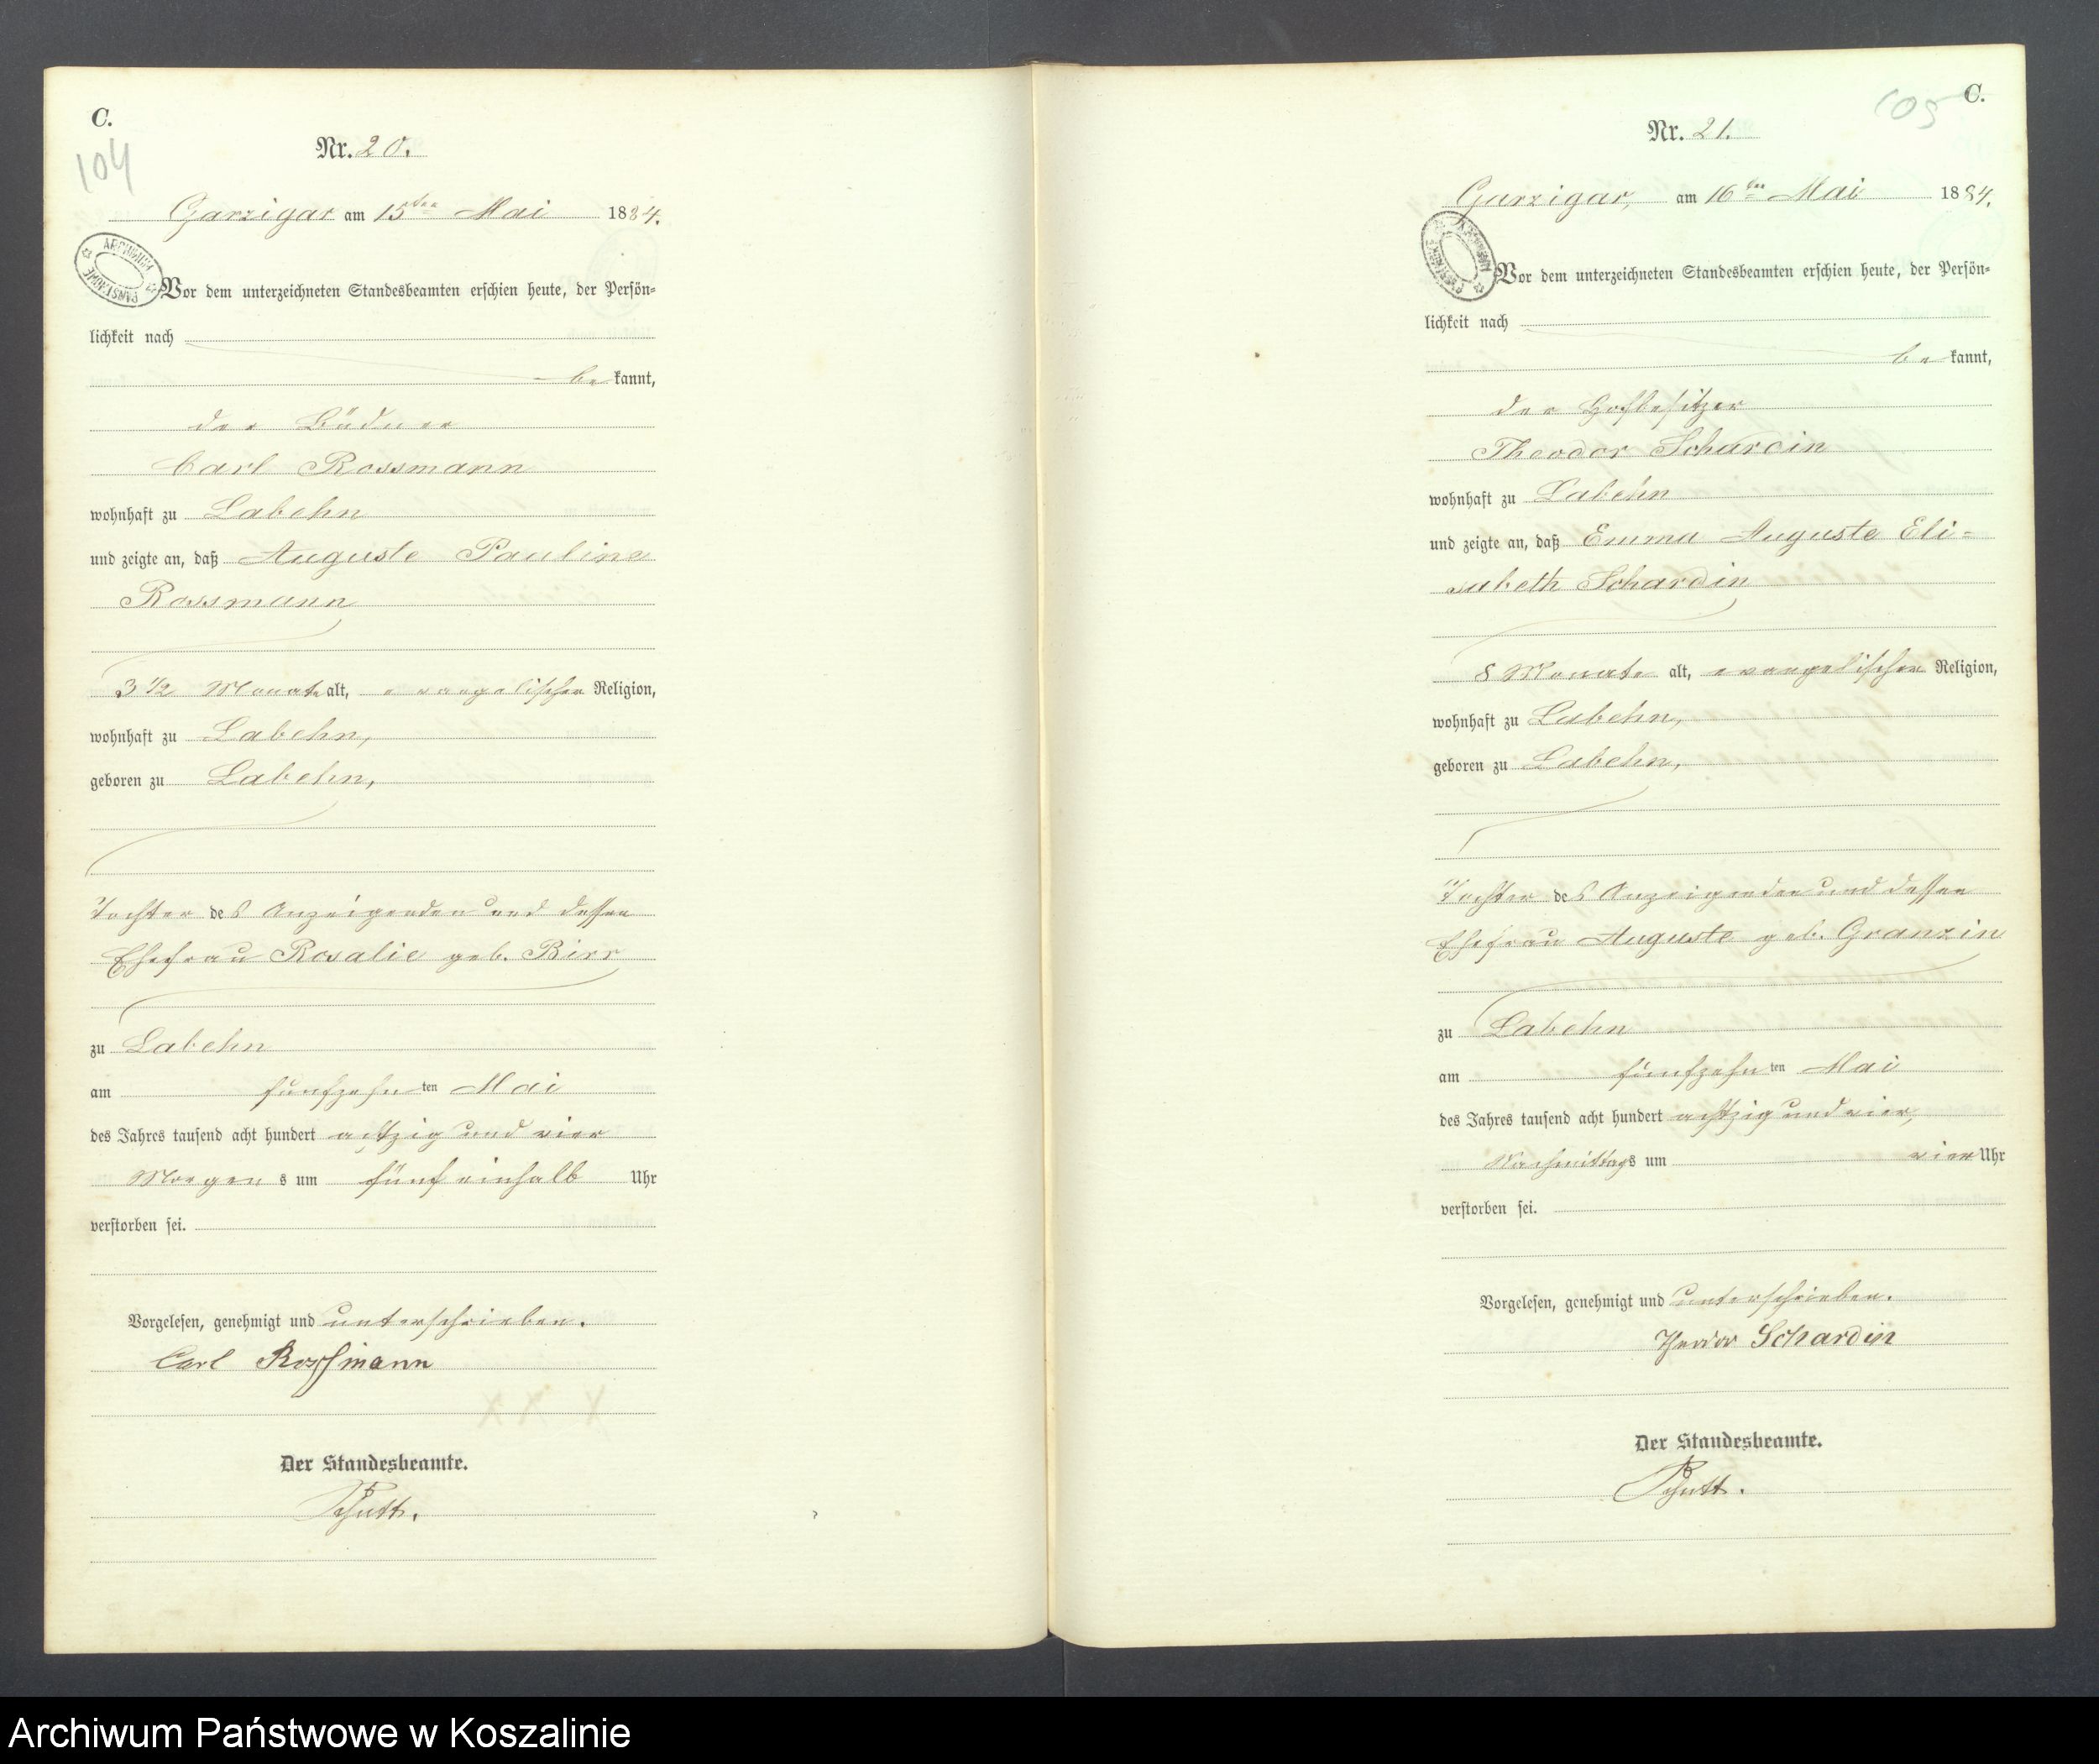 C.
104
Nr. 20.
Garzigar am 15ten Mai 1884.
ARCHIWUM PAŃSTWOWE
Vor dem unterzeichneten Standesbeamten erschien heute, der Persön-
lichkeit nach
be kannt,
der Büdner
Carl Rossmann
wohnhaft zu Labehn
und zeigte an, daß Auguste Pauline
Rossmann
3 1/2 Monate alt, evangelischer Religion,
wohnhaft zu Labehn,
geboren zu Labehn,
Tochter des Anzeigenden und dessen
Ehefrau Rosalie geb. Birr
zu Labehn
am fünfzehn ten Mai
des Jahres tausend acht hundert achtzig und vier
Morgen s um fünf einhalb Uhr
verstorben sei.
Vorgelesen, genehmigt und unterschrieben.
Carl Rossmann
Der Standesbeamte.
C.
105
Nr. 21.
Garzigar, am 16ten Mai 1884.
Vor dem unterzeichneten Standesbeamten erschien heute, der Persön-
lichkeit nach
be kannt,
der Hofbesitzer
Theodor Schardin
wohnhaft zu Labehn
und zeigte an, daß Emma Auguste Eli-
sabeth Schardin
8 Monate alt, evangelischer Religion,
wohnhaft zu Labehn,
geboren zu Labehn,
Tochter des Anzeigenden und dessen
Ehefrau Auguste geb. Granzin
zu Labehn
am fünfzehn ten Mai
des Jahres tausend acht hundert achtzig und vier,
Nachmittags um vier Uhr
verstorben sei.
Vorgelesen, genehmigt und unterschrieben.
Theodor Schardin
Der Standesbeamte.
Archiwum Państwowe w Koszalinie